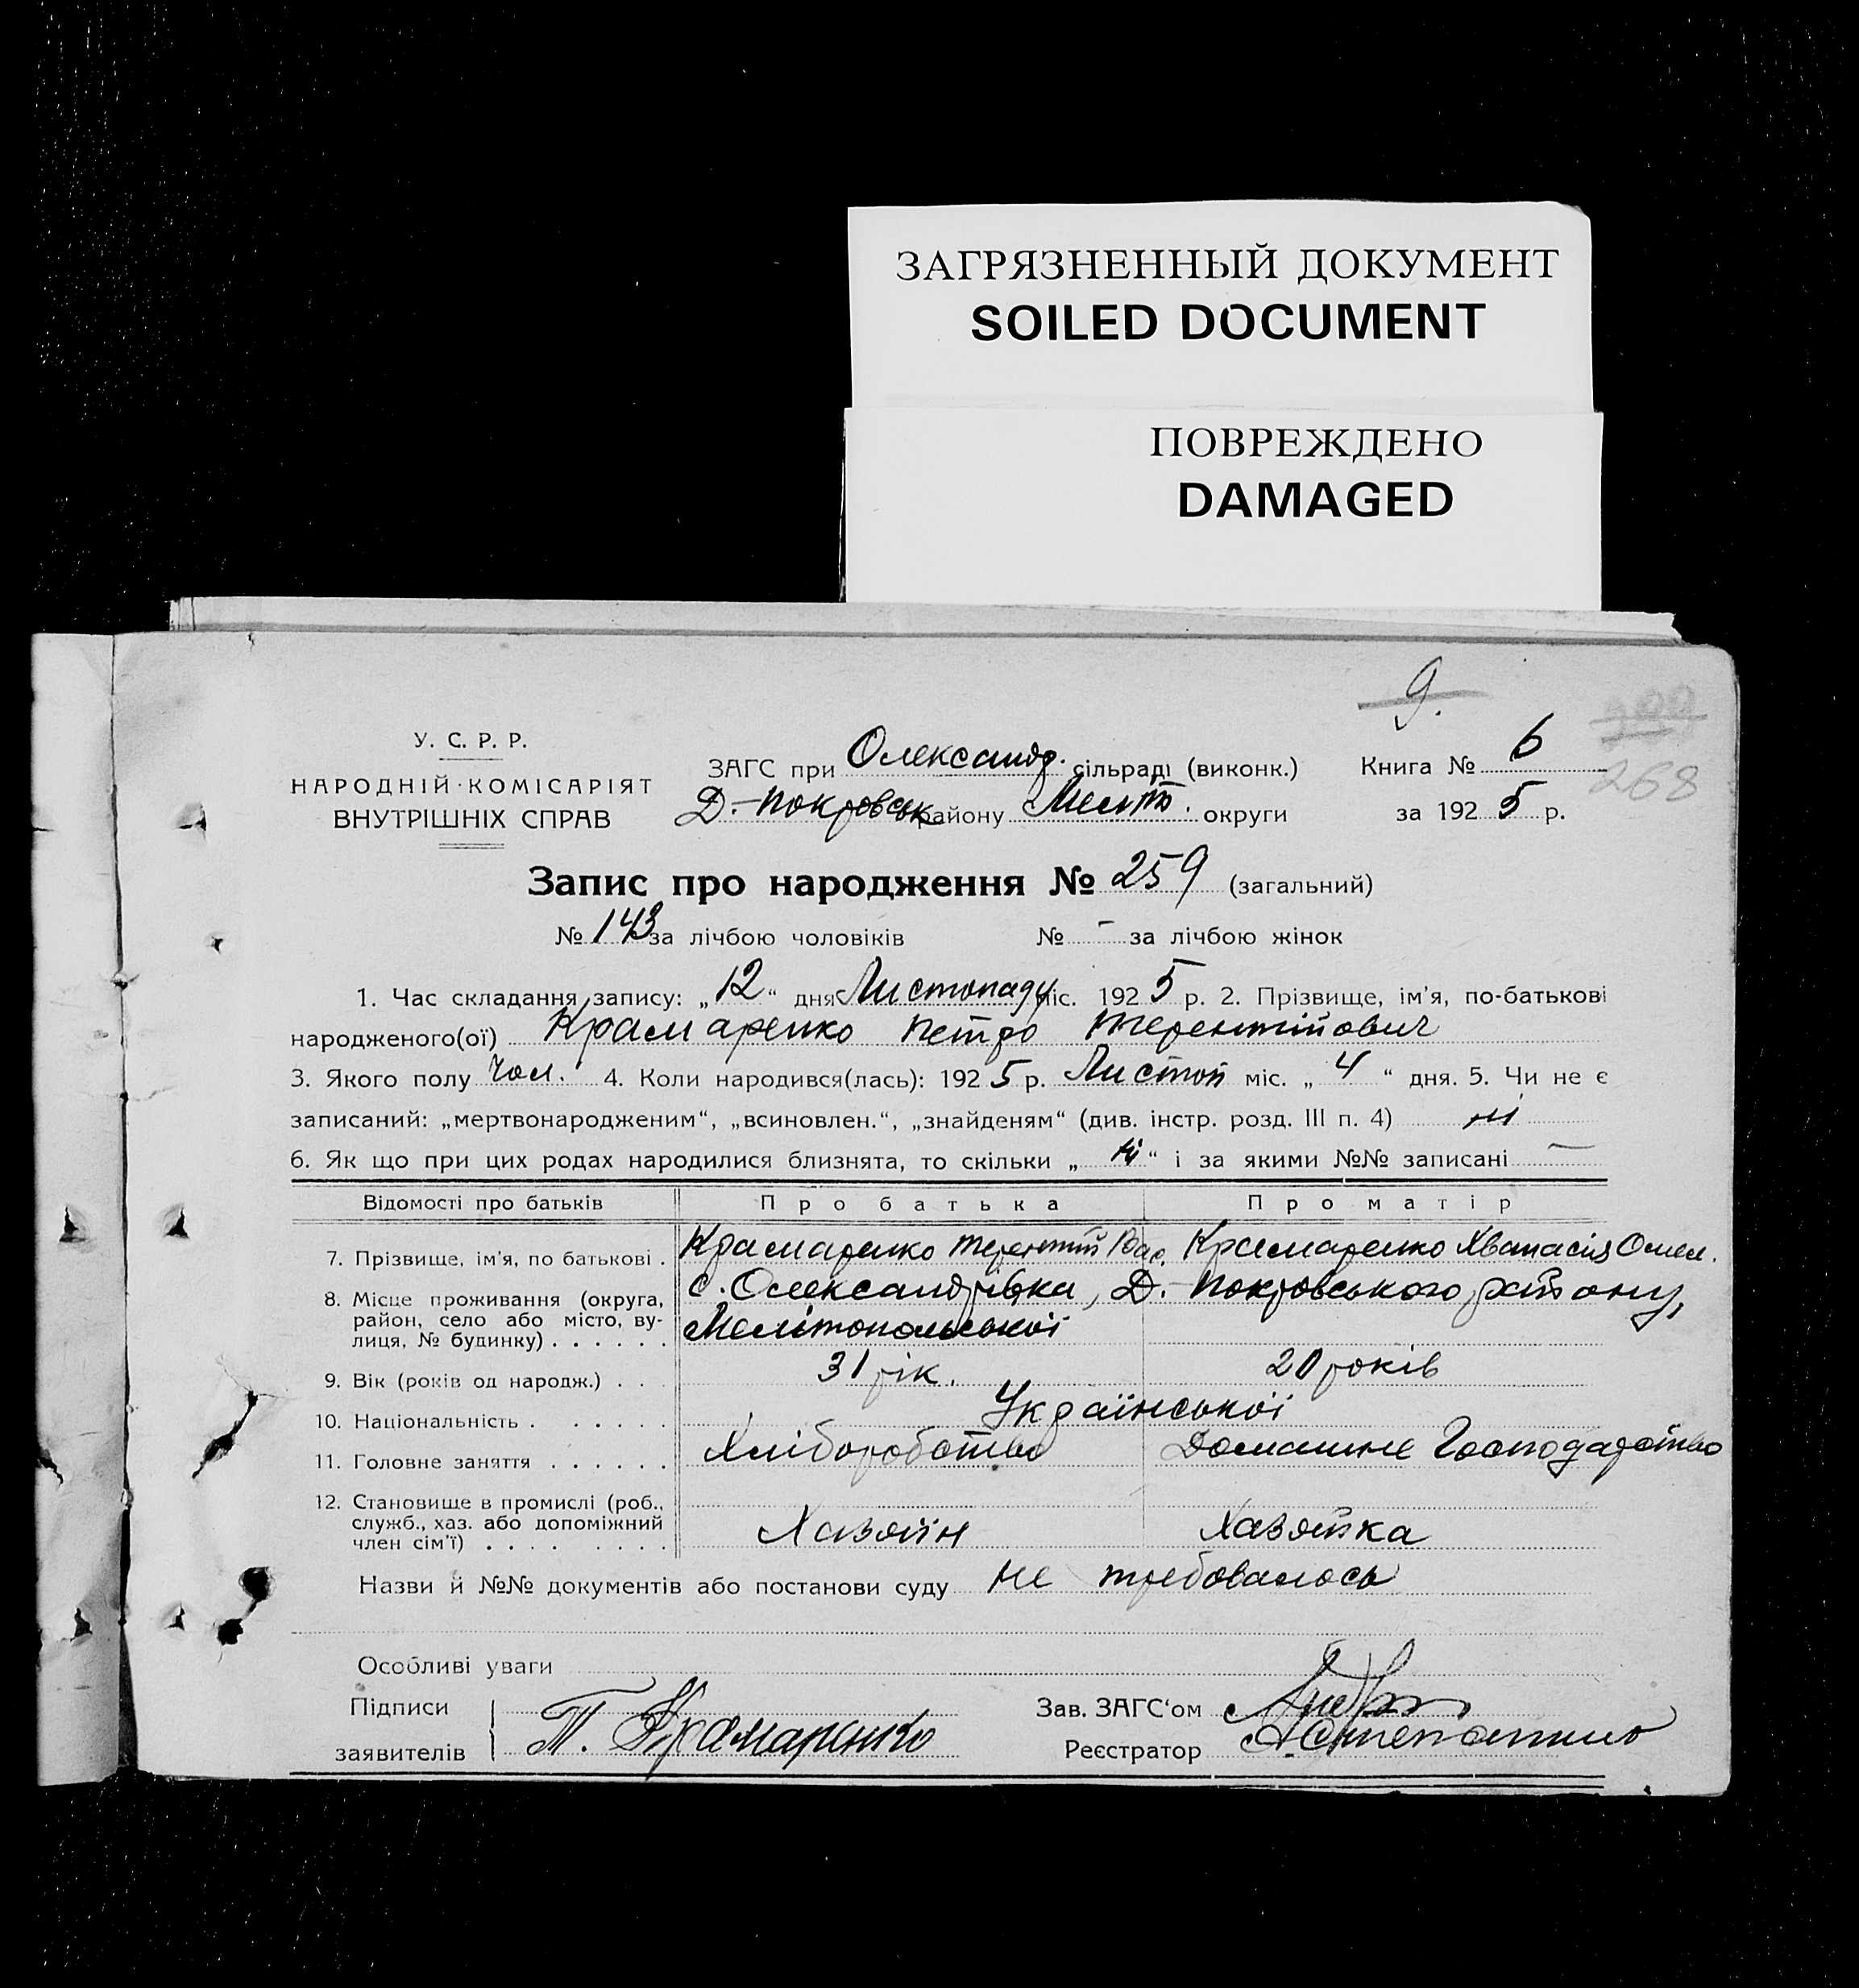 ЗАГРЯЗНЕННЫЙ ДОКУМЕНТ
SOILED DOCUMENT
ПОВРЕЖДЕНО
DAMAGED
9.
200
268
У. С. Р. Р.
НАРОДНІЙ КОМІСАРІЯТ
ВНУТРІШНІХ СПРАВ
ЗАГС при Олександр. сільраді (виконк.) Книга № 6
Д.-Покровськ району Меліт. округи за 1925 р.
Запис про народження № 259 (загальний)
№ 143 за лічбою чоловіків № - за лічбою жінок
1. Час складання запису: „12“ дня Листопаду міс. 1925 р. 2. Прізвище, ім'я, по-батькові
народженого(ої) Крамаренко Петро Терентійович
3. Якого полу Чол. 4. Коли народився(лась): 1925 р. Листоп міс. „4“ дня. 5. Чи не є
записаний: „мертвонародженим“, „всиновлен.“, „знайденям“ (див. інстр. розд. III п. 4) ні
6. Як що при цих родах народилися близнята, то скільки „ні“ і за якими №№ записані —
Відомості про батьків Про батька Про матір
7. Прізвище, ім'я, по батькові . Крамаренко Терентій Крамаренко Хванасія Омел.
8. Місце проживання (округа, район, село або місто, вулиця, № будинку) . . . . . . с. Олександрівка, Д.-Покровського району,
Мелітопольської
9. Вік (років од народж.) . . . 31 рік. 20 років
10. Національність . . . . . . Української
11. Головне заняття . . . . . . Хліборобство Домашнє Господарство
12. Становище в промислі (роб., служб., хаз. або допоміжний член сім'ї) . . . . . . . . Хазяїн Хазяйка
Назви й №№ документів або постанови суду не требовалось
Особливі уваги
Підписи
заявителів Т. Крамаренко
Зав. ЗАГС‘ом
Реєстратор